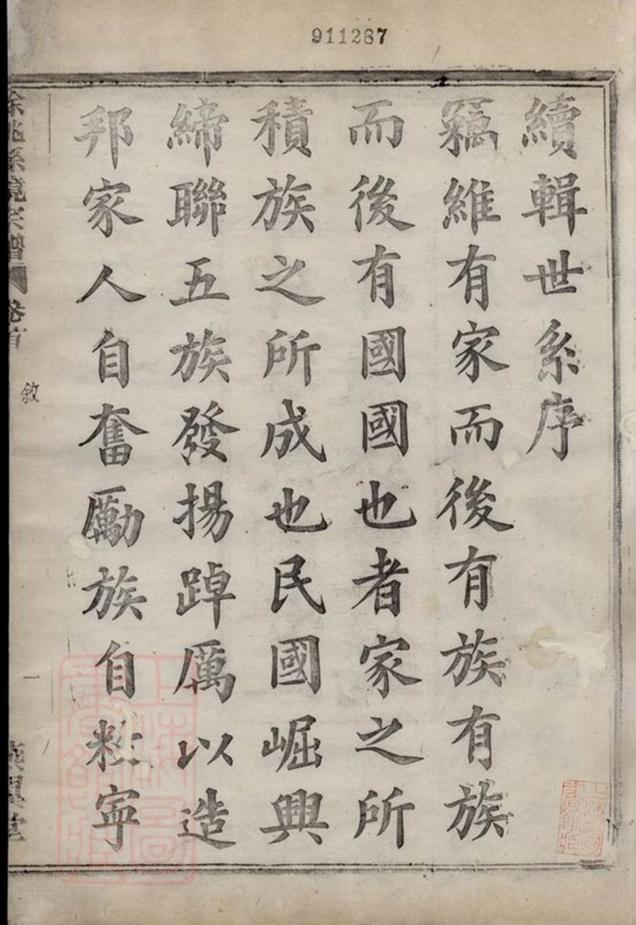 911287
續輯世系序
竊維有家而後有族有族
而後有國國也者家之所
積族之所成也民國崛興
締聯五族發揚踔厲以造
邦家人自奮勵族自粉寧
孫境宗譜 卷首
敘
一